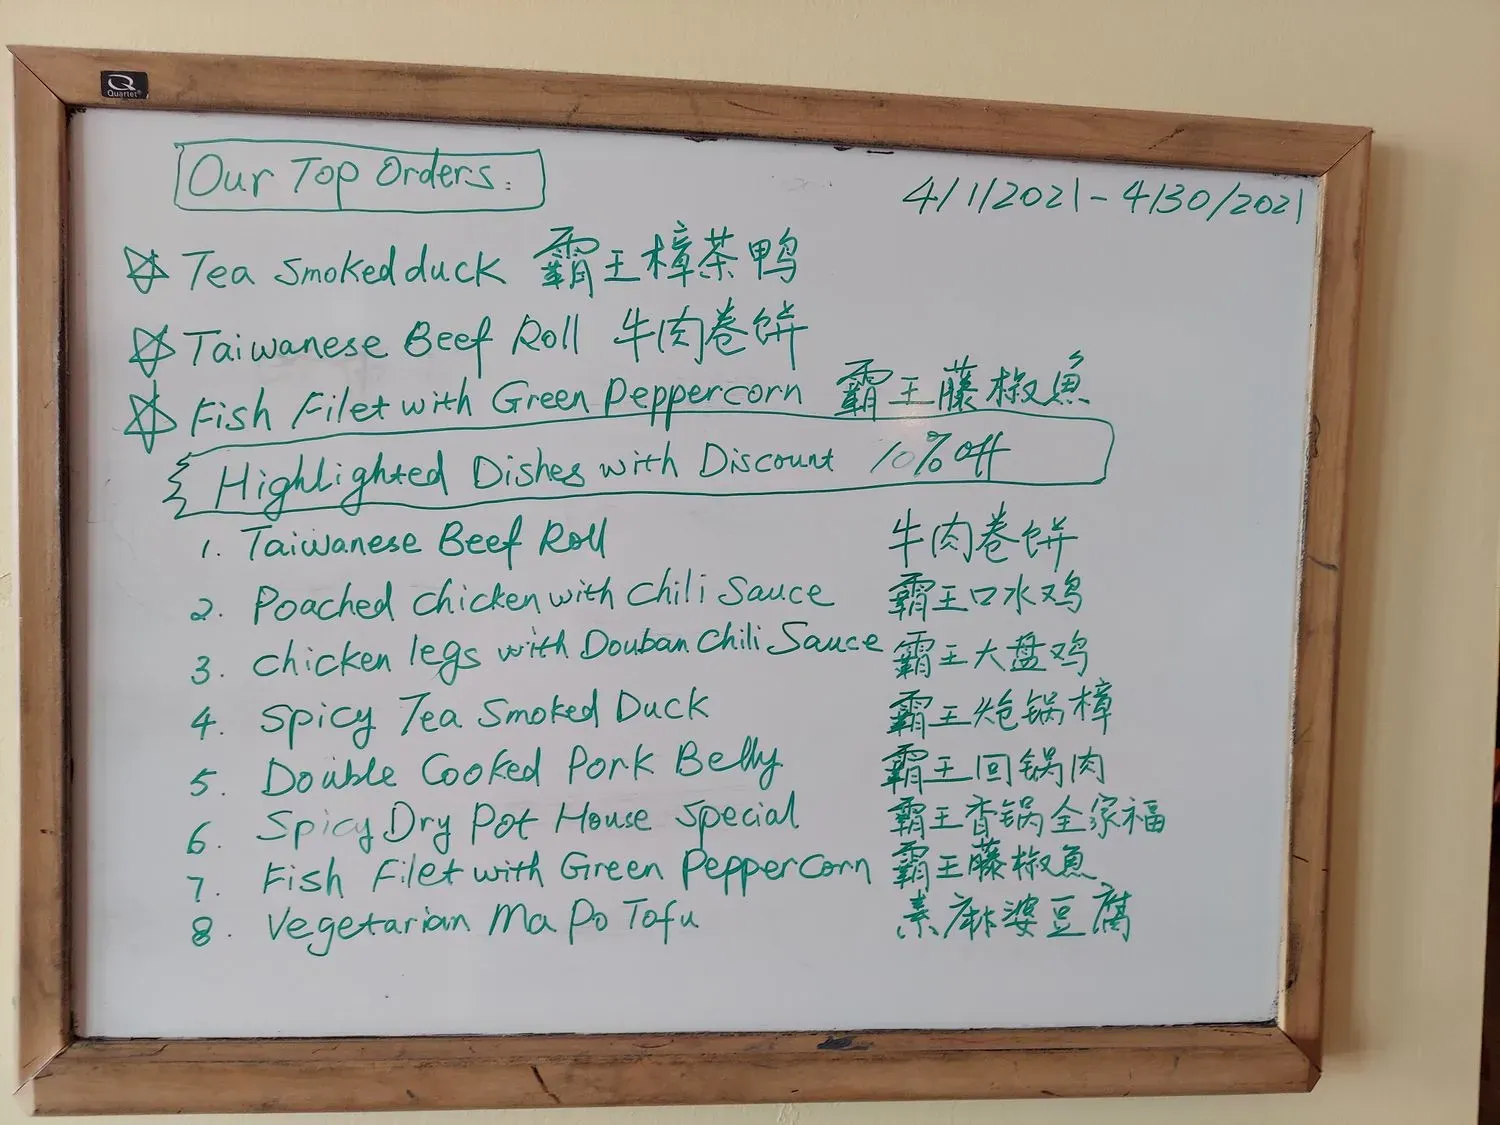 Quartet
Our Top Orders:
4/1/2021-4/30/2021
Tea Smoked duck 霸王樟茶鸭
Taiwanese Beef Roll 牛肉卷饼
Fish Filet with Green Peppercorn 霸王藤椒魚
Highlighted Dishes with Discount 10% off
1. Taiwanese Beef Roll 牛肉卷饼
2. Poached chicken with Chili Sauce 霸王口水鸡
3. chicken legs with Douban Chili Sauce 霸王大盘鸡
4. Spicy Tea Smoked Duck 霸王炝锅樟
5. Double Cooked Pork Belly 霸王回锅肉
6. Spicy Dry Pot House Special 霸王香锅全家福
7. Fish Filet with Green Peppercorn 霸王藤椒魚
8. Vegetarian Ma Po Tofu 素麻婆豆腐